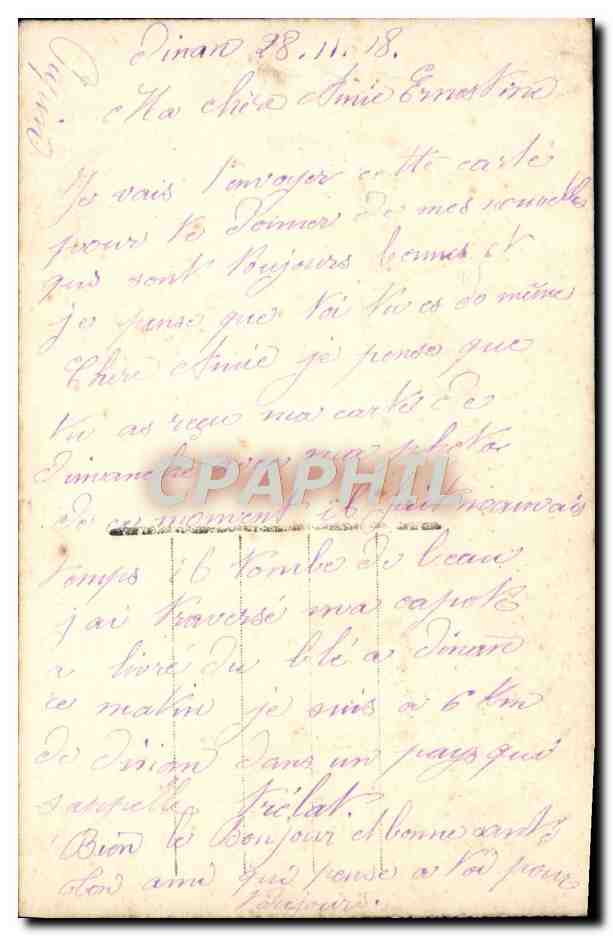 Dinan 28.11.18.
Ma chère Amie Ernestine
Je vais t'envoyer cette carte
pour te donner de mes nouvelles
qui sont toujours bonnes et
je pense que toi tu es de même
Chère Amie je pense que
tu as reçu ma carte de
dimanche avec ma photo
CPAPHIL
de ce moment il fait mauvais
temps il tombe de leau
j'ai traversé ma capote
a livré du blé a dinan
ce matin je suis a 6 Km
de dinan dans un pays qui
sappelle Trélat.
Bien le Bonjour et bonne santé
ton ami qui pense a toi pour
toujours.